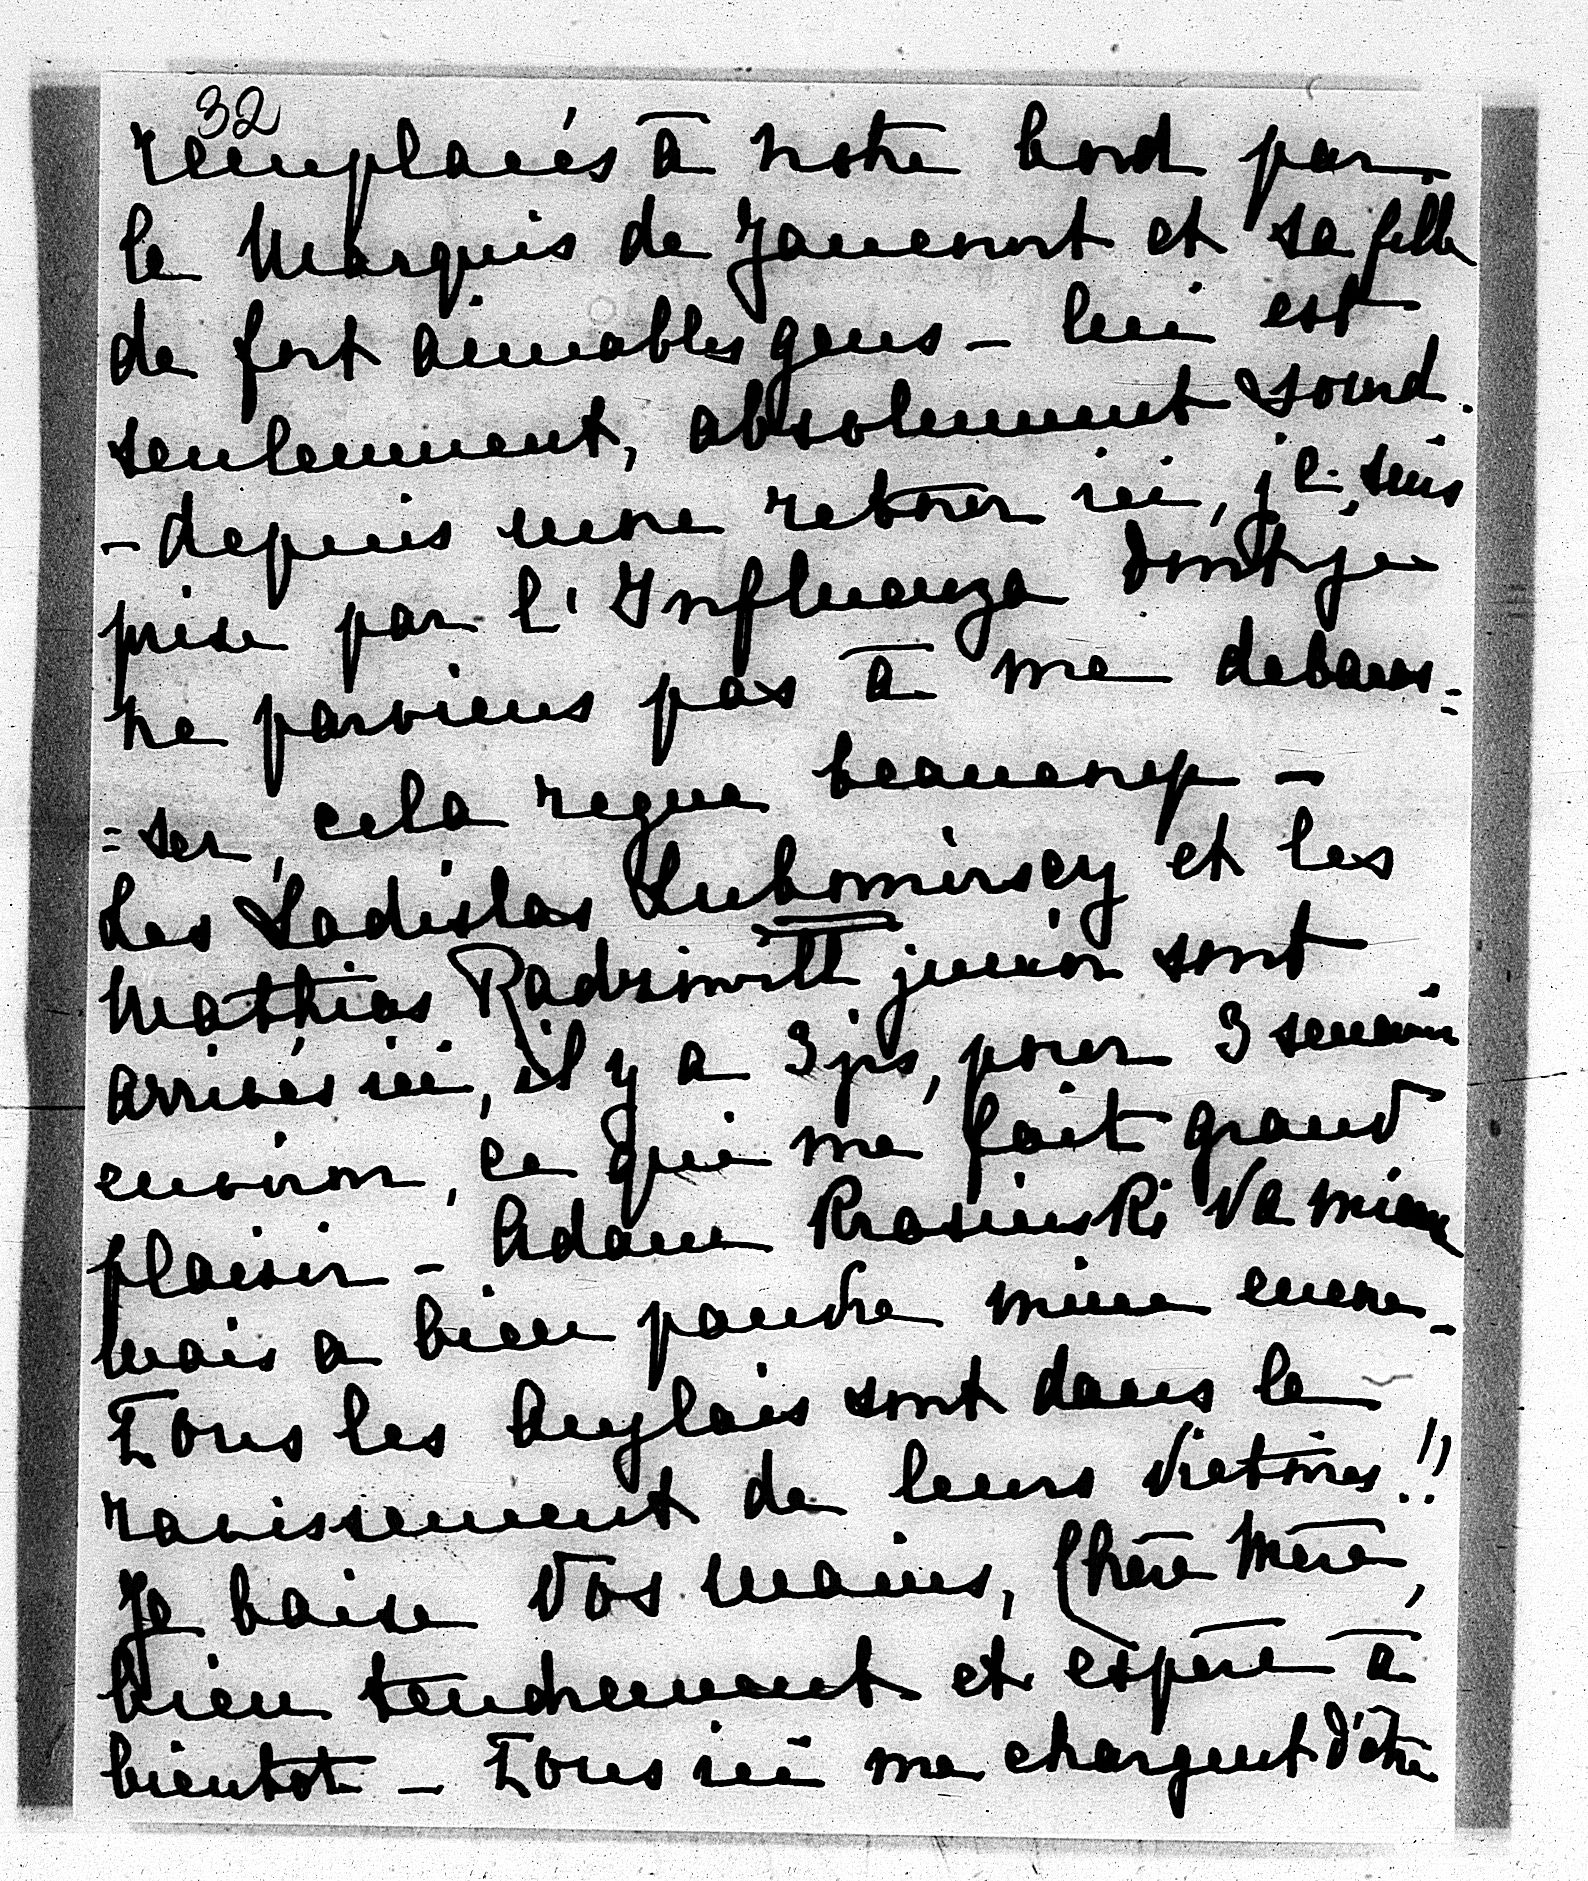 32
remplacés à notre bord par
le Marquis de Jaucourt et sa fille
de fort aimables gens - lui est
seulement, absolument sourd.
- depuis mon retour ici, je suis
prise par l'Influenza dont je
ne parviens pas à me debarras=
=ser, cela regne beaucoup -
Les Ladislas Lubomirscy et les
Mathias Radziwill junior sont
arrivés ici, il y a 3 jrs, pour 3 semaines
environ, ce qui me fait grand
plaisir - Adam Krasinski va mieux
mais a bien pauvre mine encore -
Tous les Anglais sont dans le
ravissement de leurs victoires!!
Je baise Vos mains, Chère Mère,
bien tendrement et espère à
bientot - Tous ici me chargent d'être